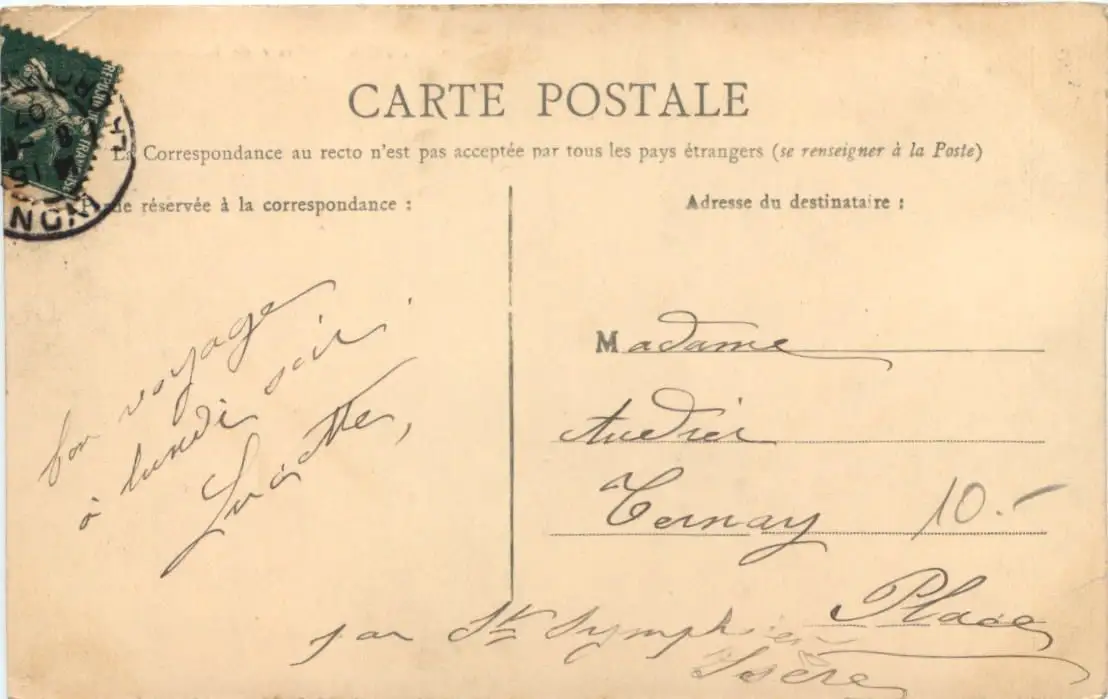 CARTE POSTALE
La Correspondance au recto n'est pas acceptée par tous les pays étrangers (se renseigner à la Poste)
réservée à la correspondance :
Adresse du destinataire :
bon voyage
à lundi soir
Madame
Audier
Ternay 10.-
Place
par St Symph
Isère